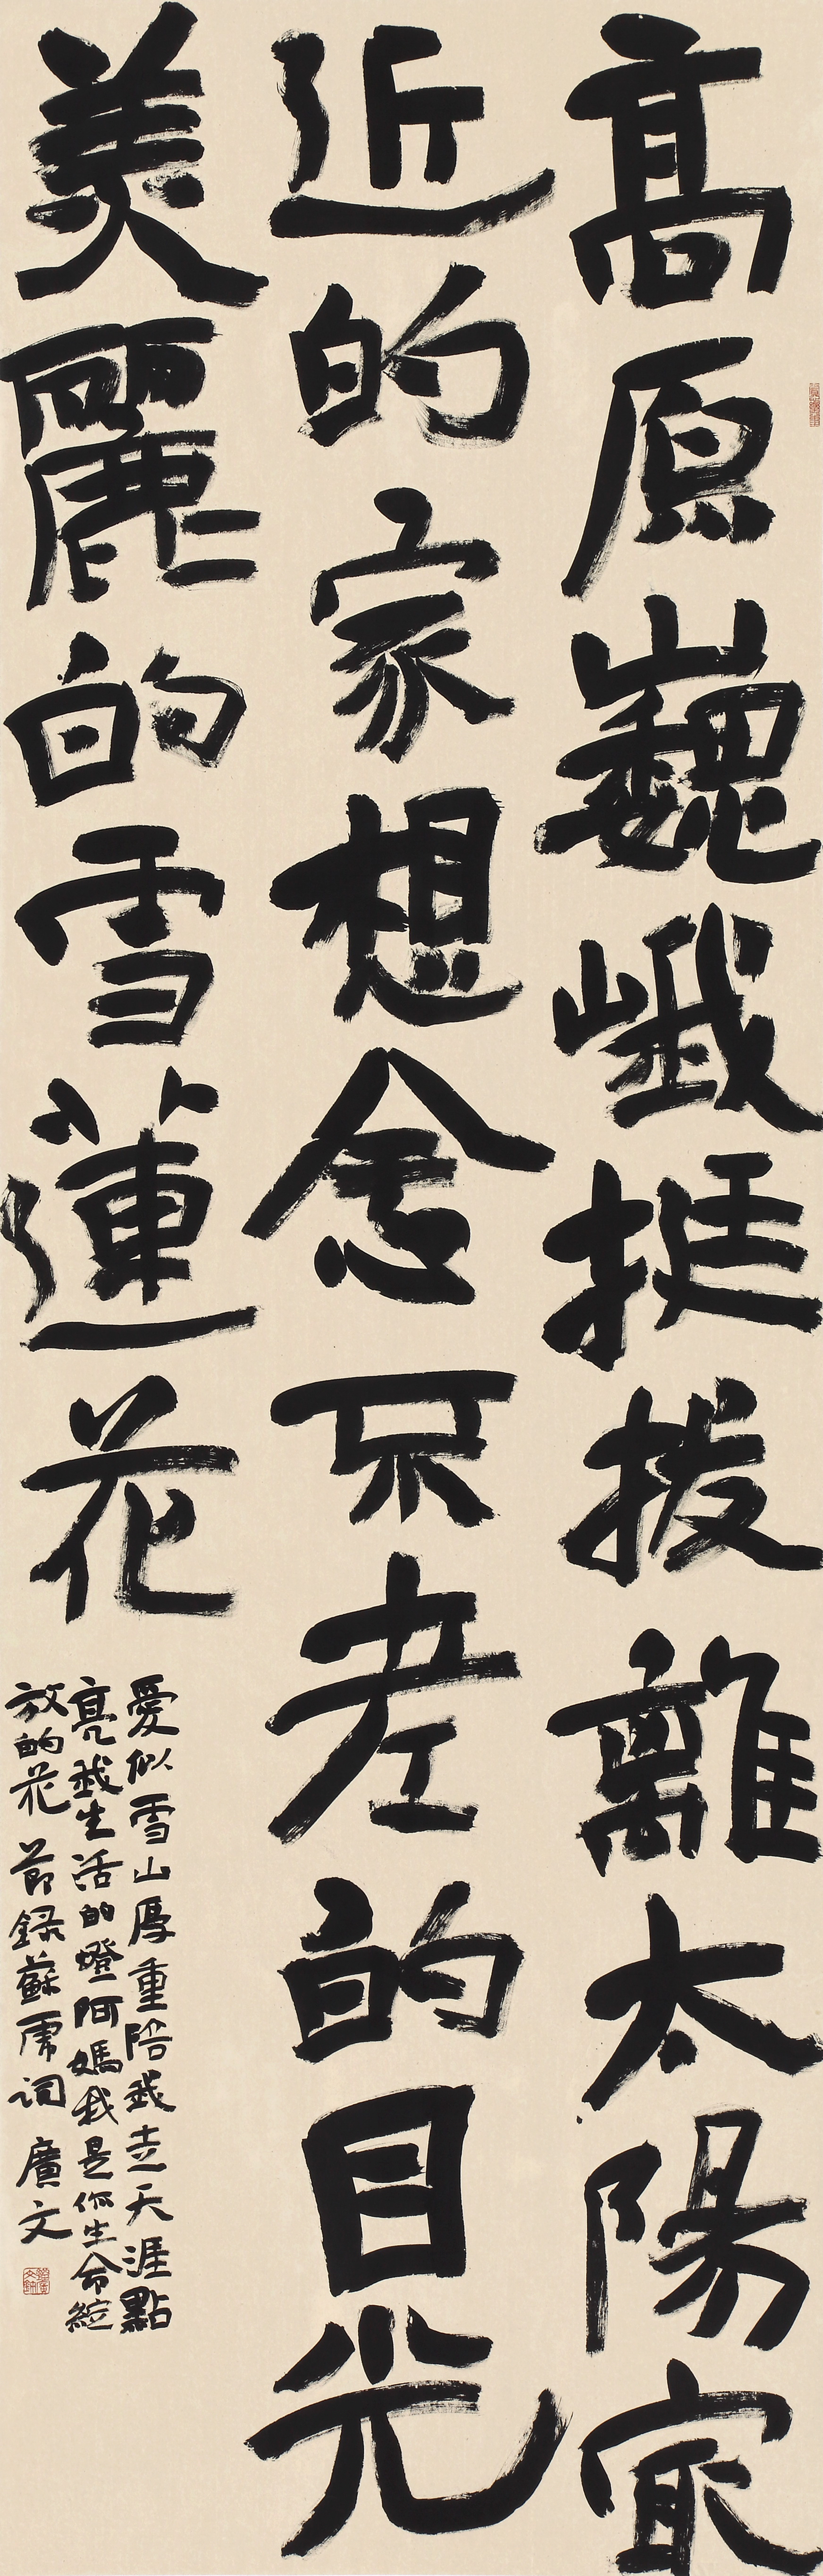 高原巍峨挺拔離太陽最
近的家想念不老的目光
美麗的雪蓮花
愛似雪山厚重陪我走天涯點
亮我生活的燈阿媽我是你生命綻
放的花 節録蘇虎詞 廣文